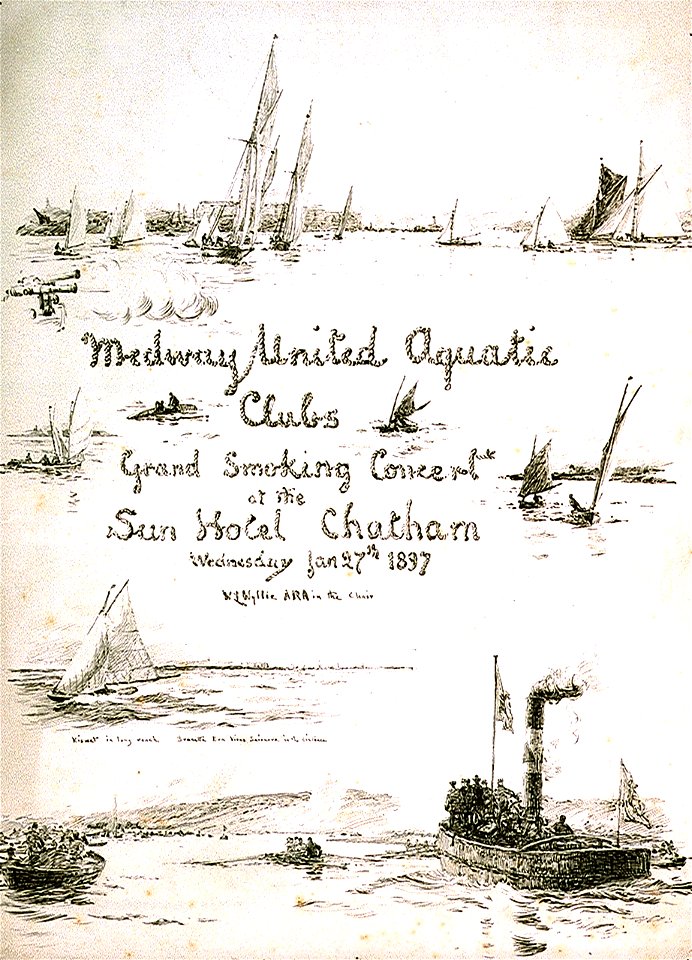 Medway United Aquatic
Clubs
Grand Smoking Concert
at the
Sun Hotel Chatham
Wednesday Jan 27th 1897
W L Wyllie ARA in the Chair
in long reach in the distance